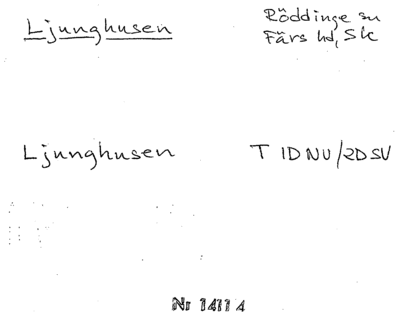 Ljunghusen
Röddinge sn
Färs hd, Sk
Ljunghusen T 1D NV/2D SV
Nr 1411 4